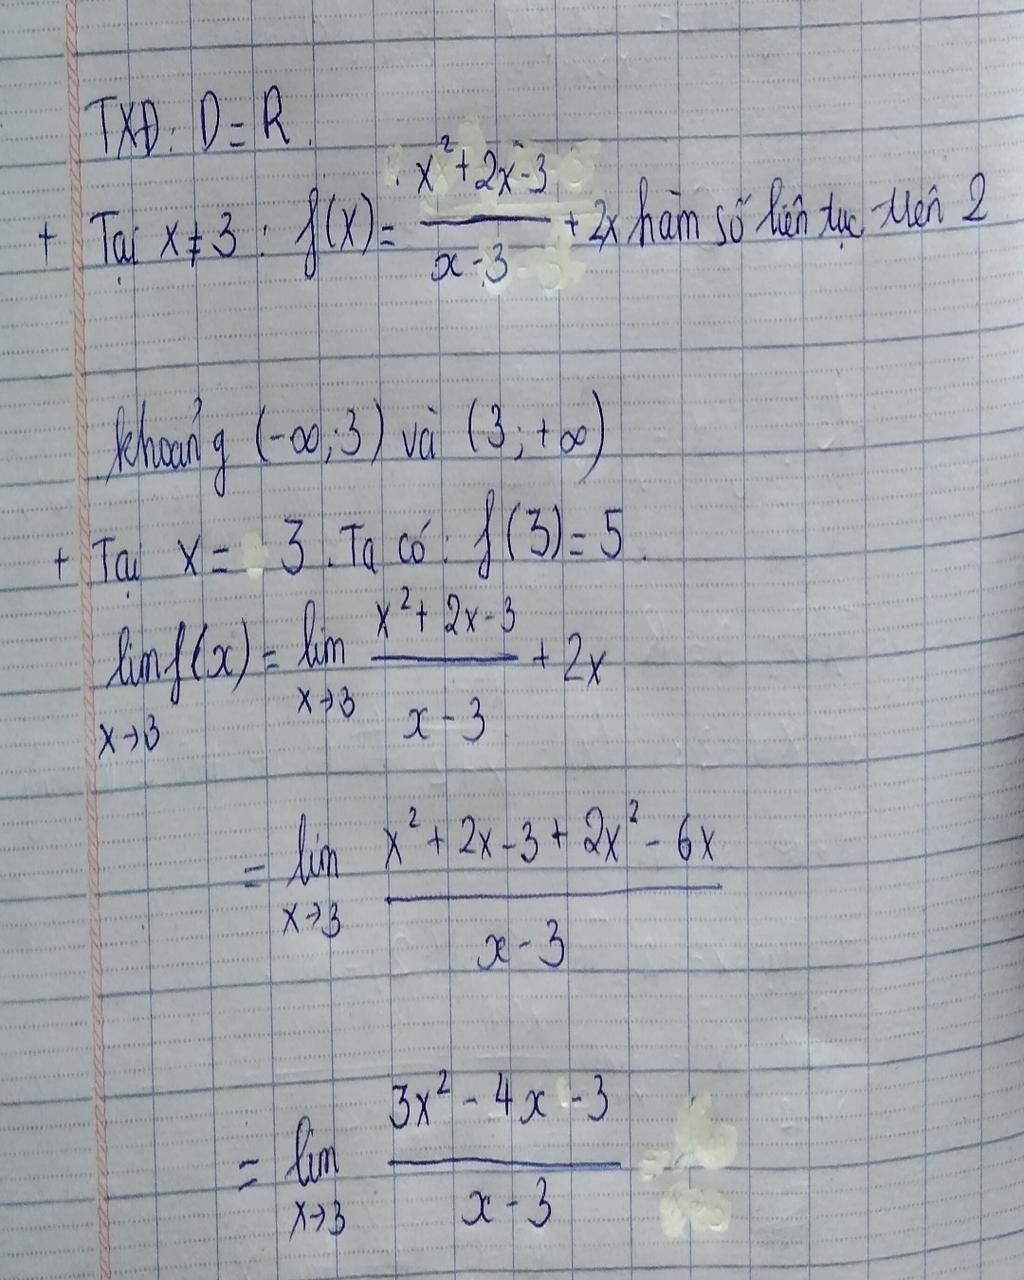 TXĐ: D = R.
+ Tại x ≠ 3 : f(x) = (x² + 2x - 3)/(x - 3) + 2x hàm số liên tục trên 2
khoảng (-∞; 3) và (3; +∞)
+ Tại x = 3. Ta có: f(3) = 5.
lim x→3 f(x) = lim x→3 (x² + 2x - 3)/(x - 3) + 2x
= lim x→3 (x² + 2x - 3 + 2x² - 6x)/(x - 3)
= lim x→3 (3x² - 4x - 3)/(x - 3)